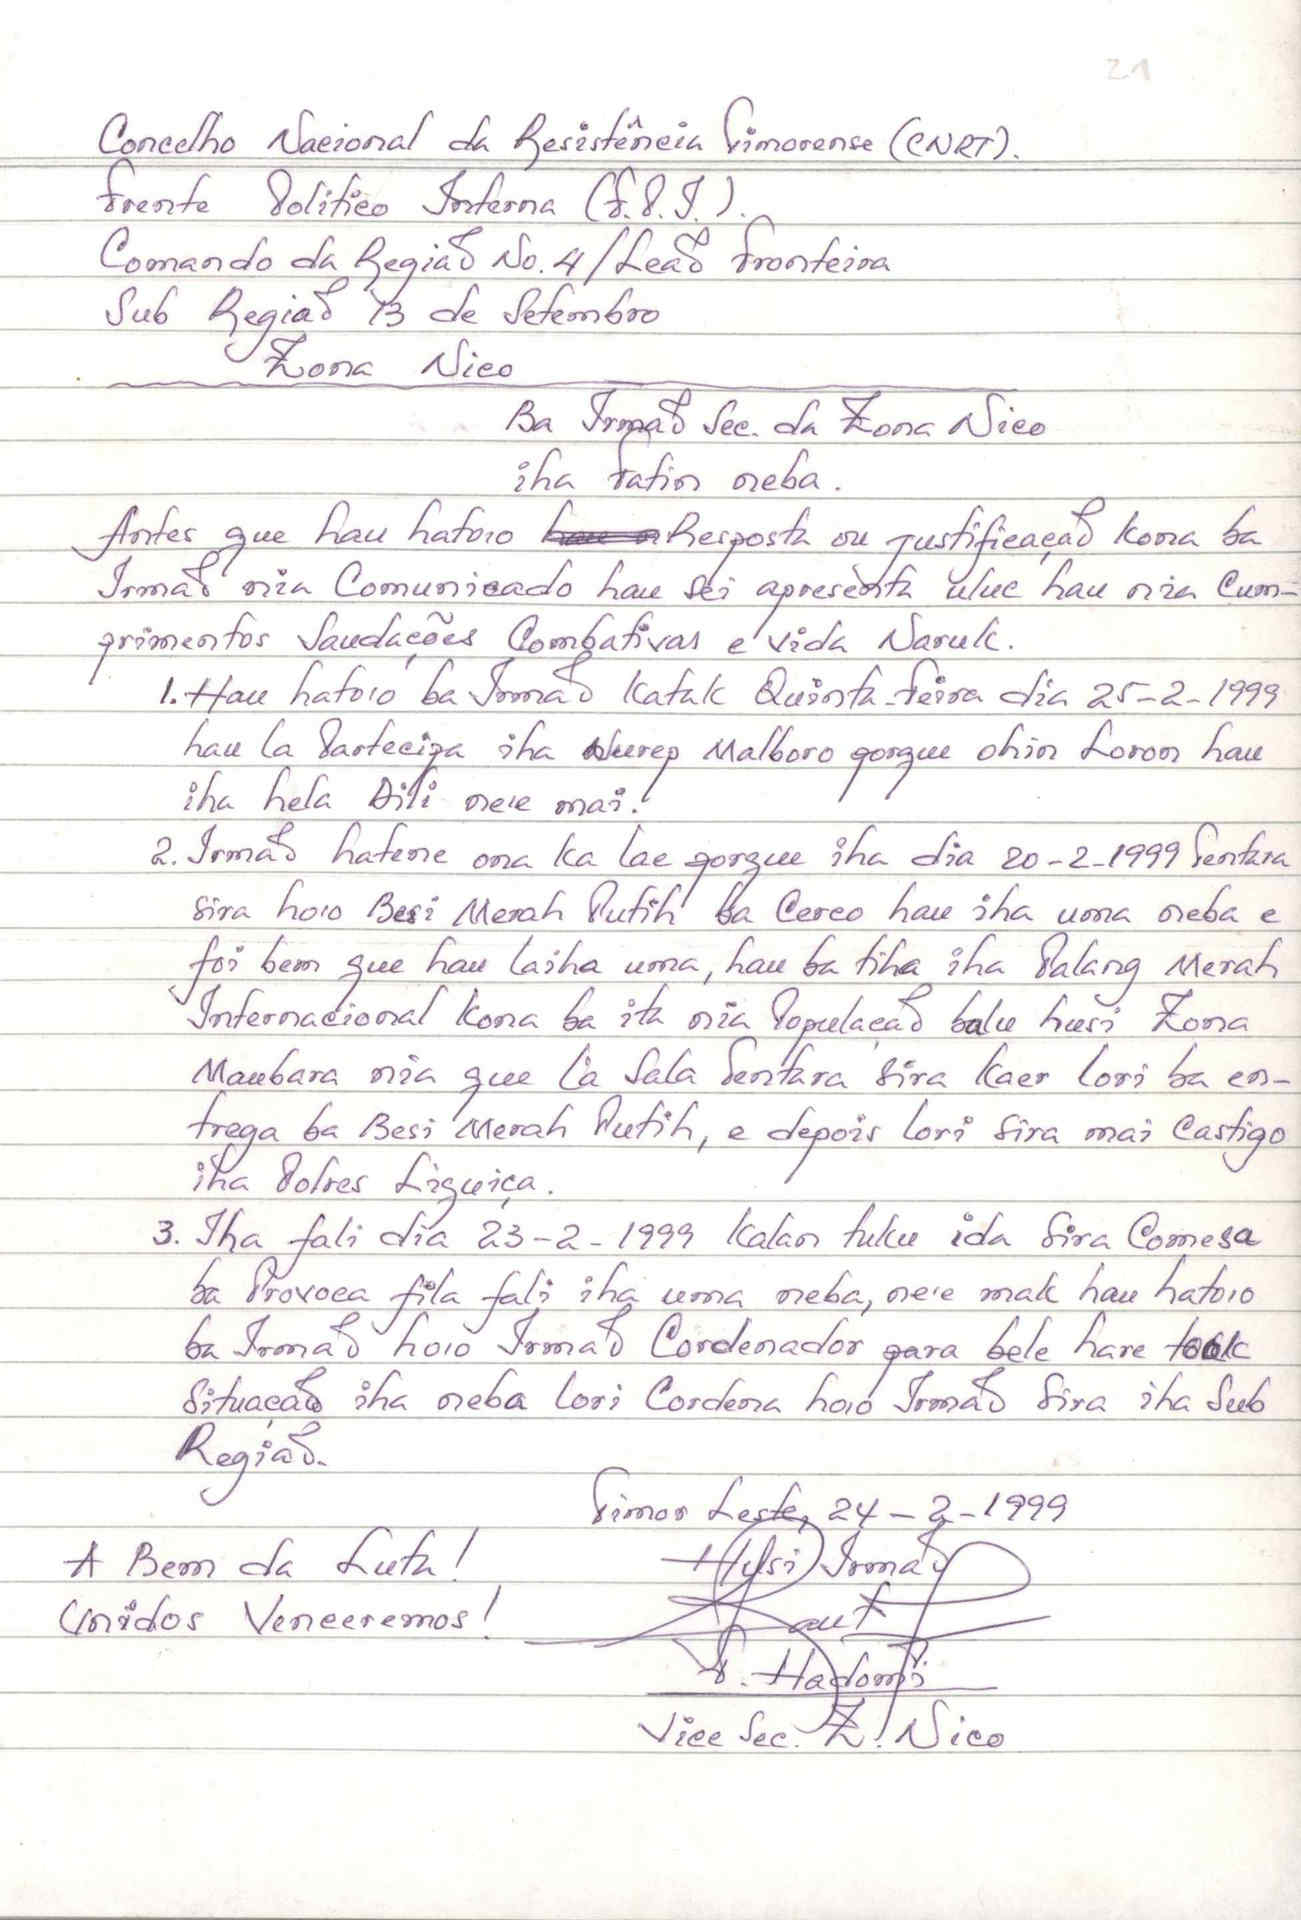 21
Concelho Nacional da Resistência Timorense (CNRT).
Frente Politico Interna (F.P.I.).
Comando da Região No. 4/Leão Fronteira
Sub Região 13 de Setembro
Zona Nico
Ba Irmão Sec. da Zona Nico
iha fatin neba.
Antes que hau hato'o Resposta ou justificação kona ba
Irmão nia Comunicado hau sei apresenta uluc hau nia Cum-
primentos Saudações Combativas e vida Naruk.
1. Hau hato'o ba Irmão katak Quinta-feira dia 25-2-1999
hau la Partecipa iha Nurep Malboro porque ohin Loron hau
iha hela Dili ne'e mai.
2. Irmão hatene ona ka lae porque iha dia 20-2-1999 Tentara
sira ho'o Besi Merah Putih ba Cerco hau iha uma neba e
foi bem que hau laiha uma, hau ba tiha iha Palang Merah
Internacional kona ba ita nia População balu husi Zona
Maubara nia que la sala Tentara sira kaer lori ba en-
trega ba Besi Merah Putih, e depois lori sira mai Castigo
iha Polres Liquiça.
3. Iha fali dia 23-2-1999 kalan tuku ida sira Comesa
ba Provoca fila fali iha uma neba, ne'e mak hau hato'o
ba Irmão ho'o Irmão Cordenador para bele hare took
Situação iha neba lori Cordena ho'o Irmão Sira iha Sub
Região.
Timor Leste, 24-2-1999
A Bem da Luta!
Husi Irmão
Unidos Venceremos!
Hadomi
Vice Sec. Z. Nico